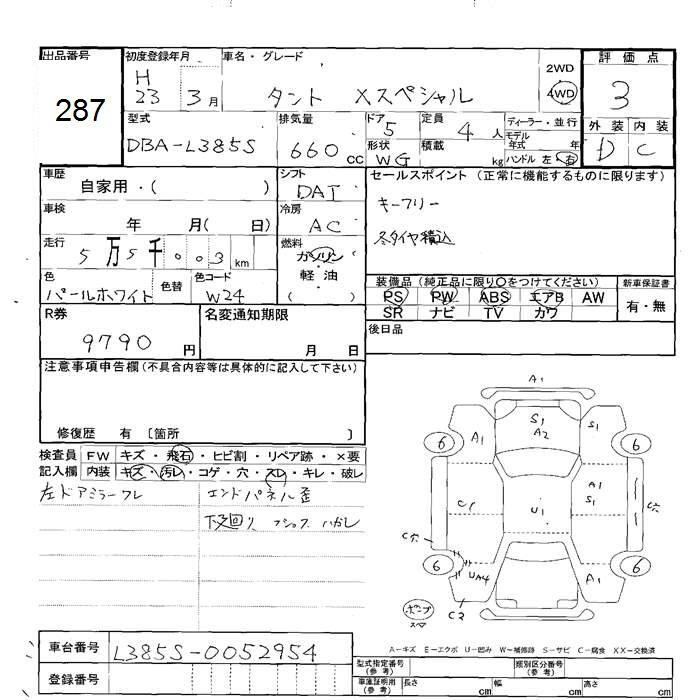 出品番号 初度登録年月 車名・グレード 2WD 評価点
287 H 23 3月 タント Xスペシャル 4WD 3
型式 排気量 ドア 5 定員 4人 ディーラー・並行 外装 内装
DBA-L385S 660cc 形状 WG 積載 kg モデル年式 年 D C
ハンドル 左・右
車歴 シフト セールスポイント (正常に機能するものに限ります)
自家用・( ) DAT キーフリー
車検 冷房
年 月( 日) AC 冬タイヤ積込
走行 5万5千003km 燃料 ガソリン
軽油
( )
色 色替 色コード 装備品 (純正品に限り○をつけてください) 新車保証書
パールホワイト W24 PS PW ABS エアB AW 有・無
SR ナビ TV カワ
R券 名変通知期限 後日品
9790円 月 日
注意事項申告欄 (不具合内容等は具体的に記入して下さい)
修復歴 有 〔箇所 〕
検査員 FW キズ・飛石・ヒビ割・リペア跡・×要
記入欄 内装 キズ・汚レ・コゲ・穴・スレ・キレ・破レ
左ドアミラーワレ エンドパネル歪
下廻り
A1
A1 S1 A2 S1
6 6
C1 U1 A1 S1 C穴
C穴
6 UA4 A1 6
C2
スペア
A-キズ E-エクボ U-凹み W-補修跡 S-サビ C-腐食 XX-交換済
車台番号 L385S-0052954
型式指定番号 (参考) 類別区分番号 (参考)
登録番号 車庫証明用 (参考) 長さ cm 幅 cm 高さ cm